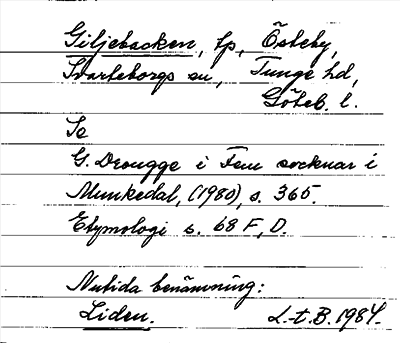 Giljebacken, tp, Östeby,
Svarteborgs sn, Tunge hd,
Göteb. l.
Se
G. Drougge i Fem socknar i
Munkedal, (1980), s. 365.
Etymologi s. 68 F, D.
Nutida benämning:
Liden. L-t. B. 1984.